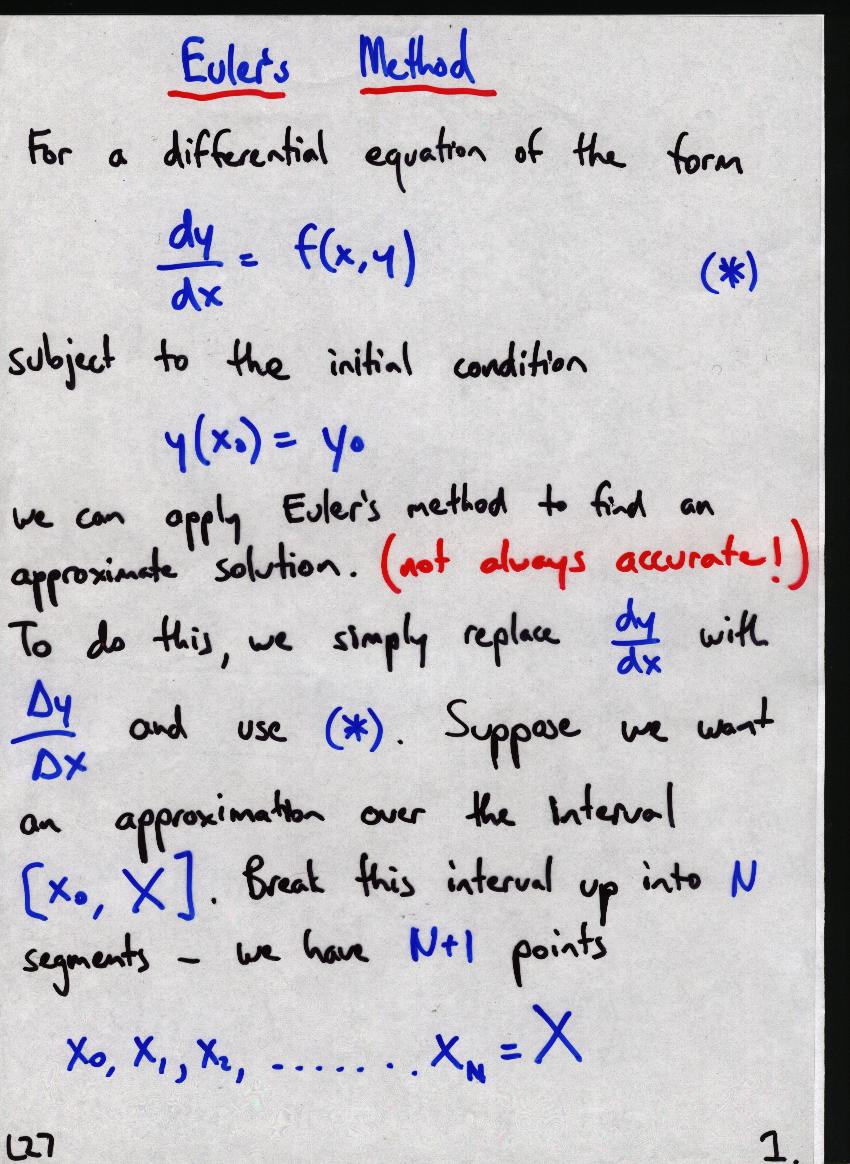 Euler's Method
For a differential equation of the form
dy/dx = f(x,y) (*)
subject to the initial condition
y(x₀) = y₀
we can apply Euler's method to find an
approximate solution. (not always accurate!)
To do this, we simply replace dy/dx with
Δy/Δx and use (*). Suppose we want
an approximation over the interval
[x₀, X]. Break this interval up into N
segments – we have N+1 points
x₀, x₁, x₂, ........ x_N = X
L27 1.